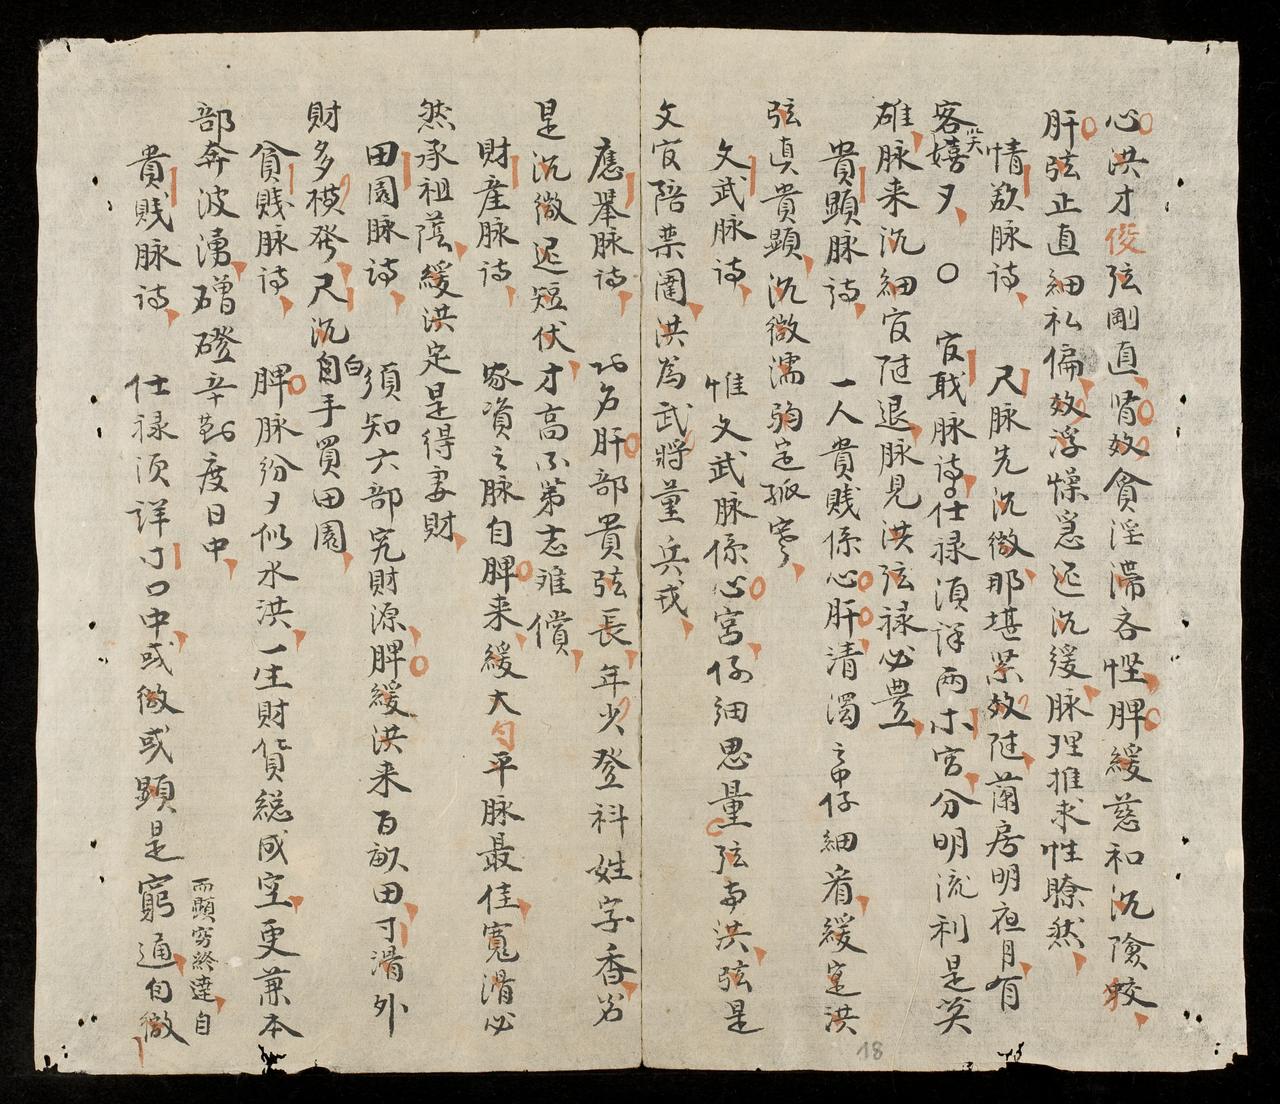 心洪才俊弦剛直腎效貪淫滞吝慳脾緩慈和沉險蛟
肝弦正直細私偏效浮燥急迟沉緩脉理推求性瞭然
情慾脉诗 尺脉先沉微那堪緊效陡蘭房明夜月有
客嬉夕 笑 〇 官職脉诗仕禄須详兩寸宫分明流利是英
雄脉来沉細官陡退脉見洪弦禄必豊
貴顯脉诗 一人貴賤係心肝清濁 仔細看緩定洪
弦真貴顯沉微濡 定孤寒
文武脉诗 惟文武脉係心宮仔細思量弦 洪弦是
文官陪禁闈洪為武將董兵戎
應舉脉诗 功名肝部貴弦長年少登科姓字香若
是沉微迟短伏才高不第志难償
財産脉诗 家資之脉自脾来緩大匀平脉最佳寬滑必
然承祖蔭緩洪定是得妻財
田園脉诗 須知六部究財源脾緩洪来百畝田寸滑外
財多横發尺沉自白手買田園
貧賤脉诗 脾脉紛夕似水洪一生財貨総成空更兼本
部奔波湧 磴辛勤度日中
貴賤脉诗 仕禄須详寸口中或微或顯是窮通自微
而顯窮終達自